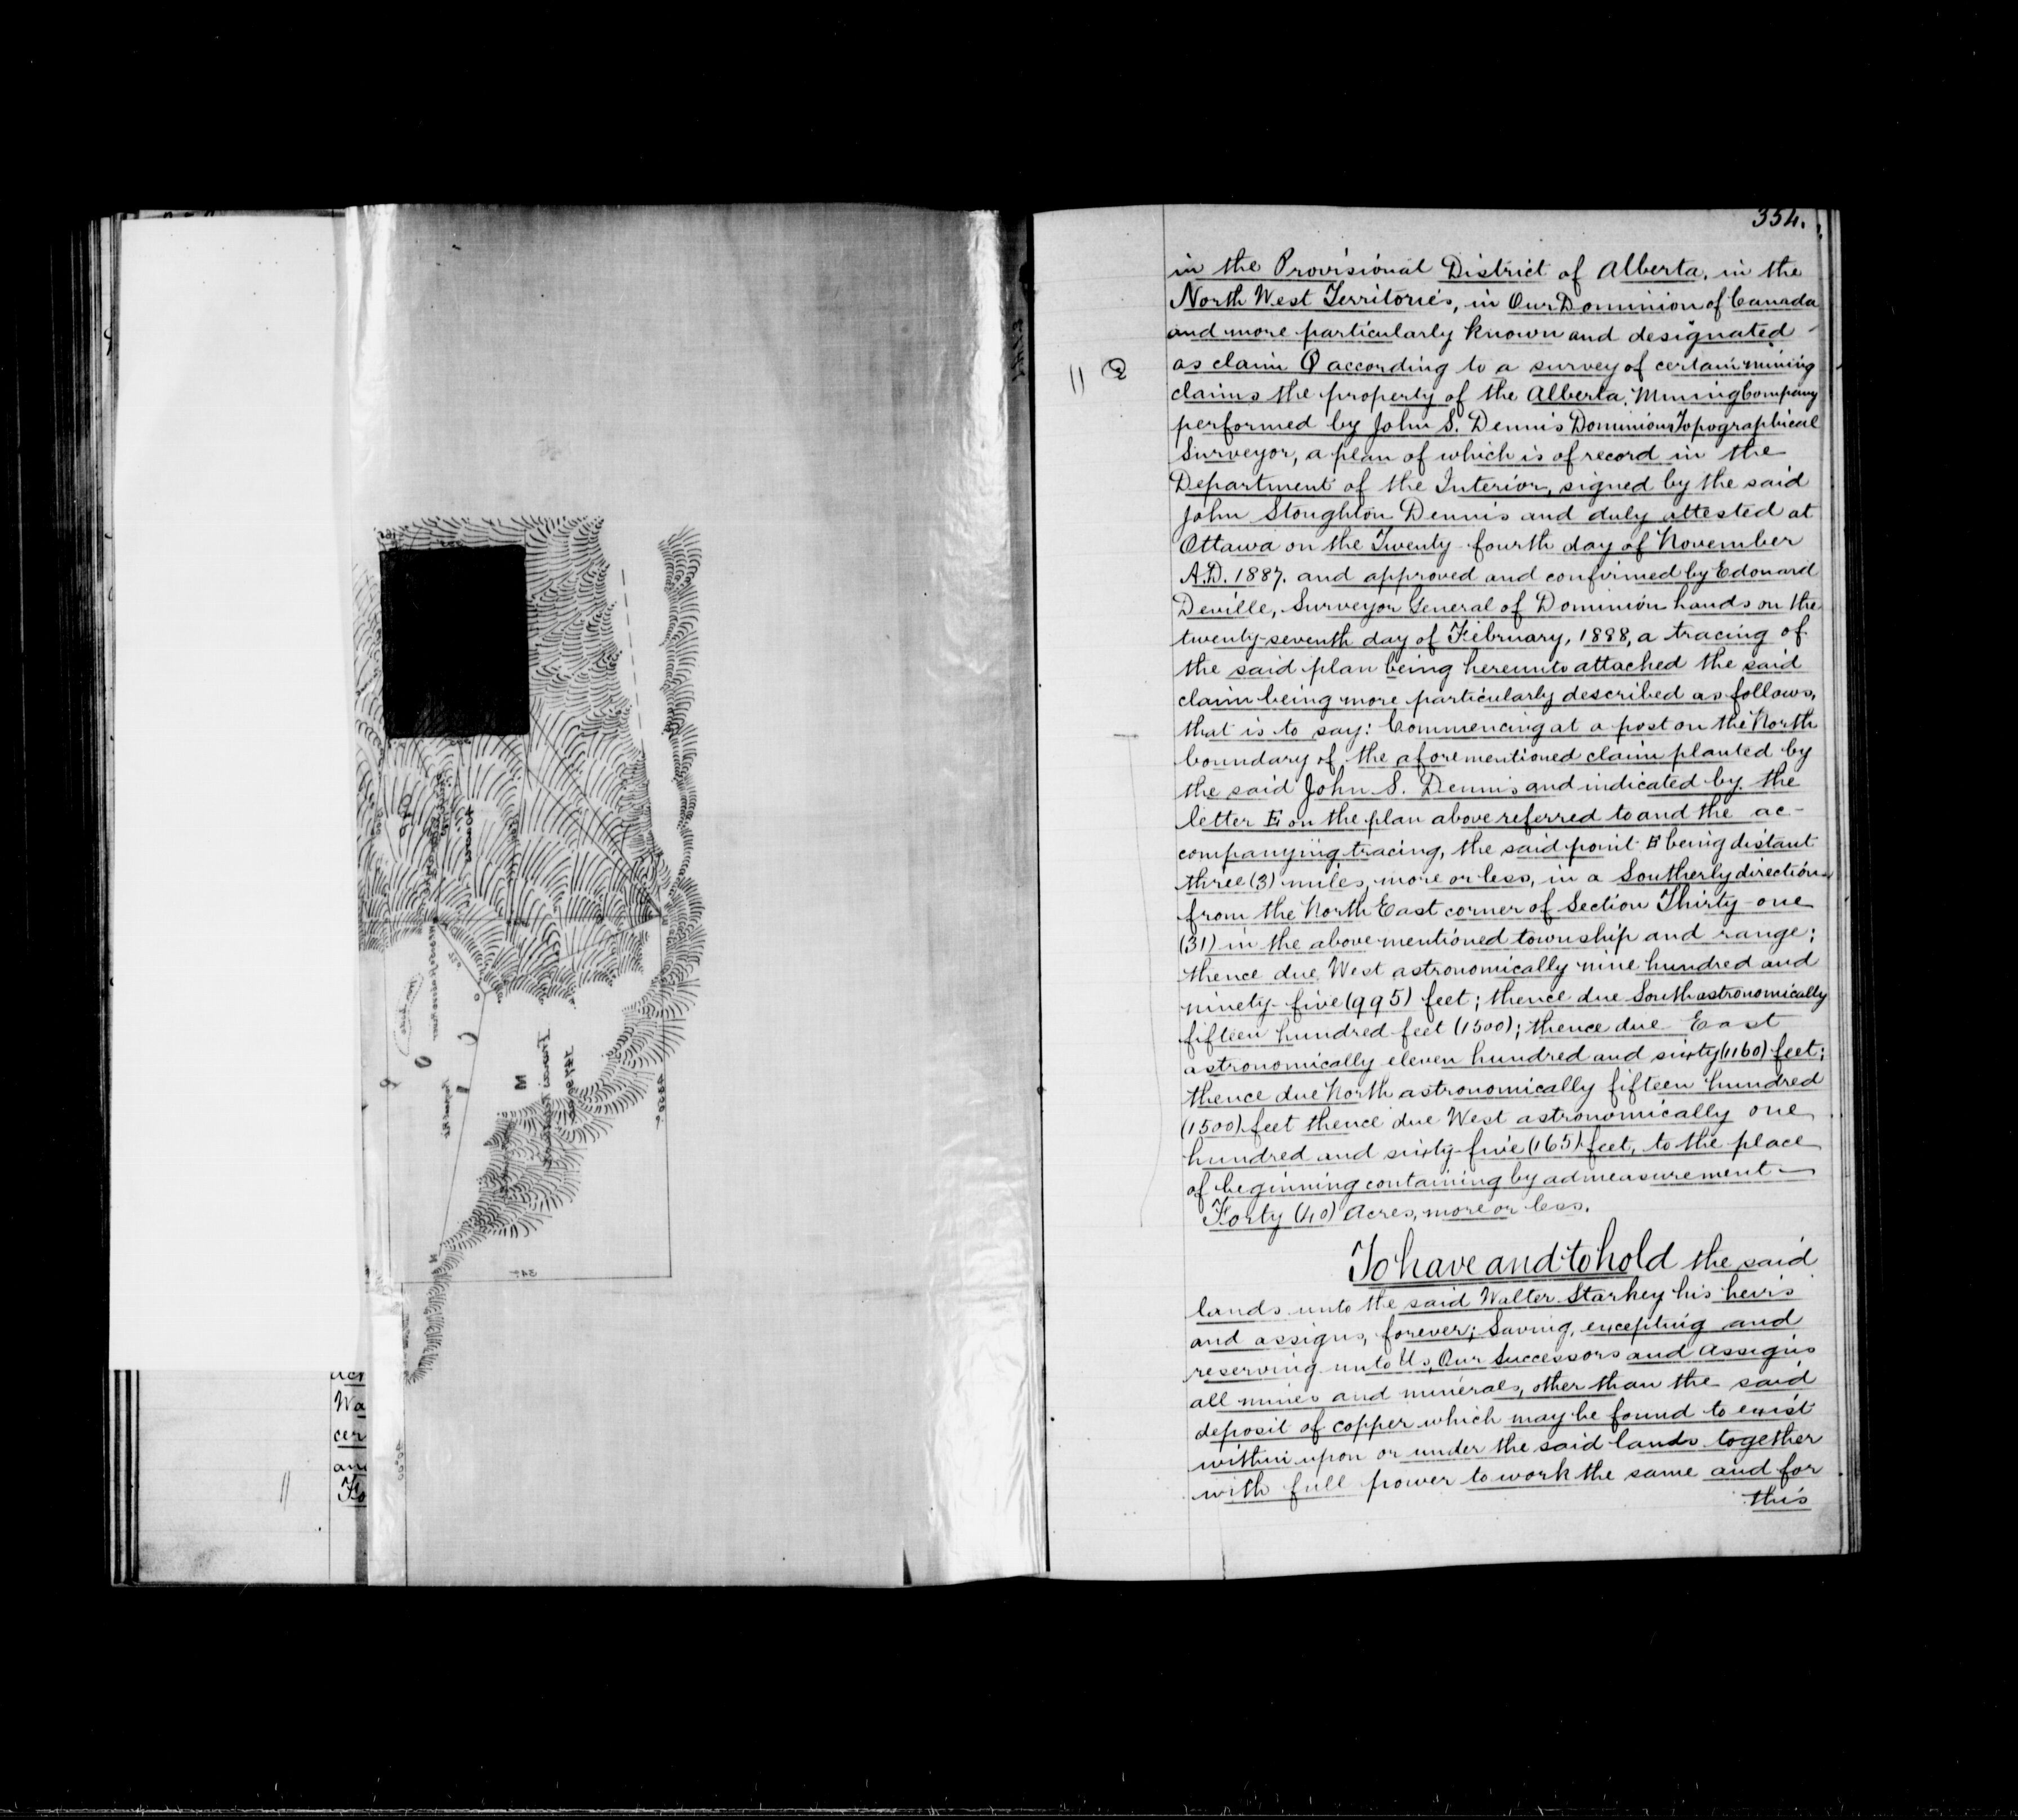 354.
in the Provisional District of Alberta, in the
North West Territories, in Our Dominion of Canada
and more particularly known and designated
as claim Q according to a survey of certain mining
claims the property of the Alberta Mining Company
performed by John S. Dennis Dominion Topographical
Surveyor, a plan of which is of record in the
Department of the Interior, signed by the said
John Stoughton Dennis and duly attested at
Ottawa on the Twenty fourth day of November
A.D. 1887. and approved and confirmed by Edouard
Deville, Surveyor General of Dominion lands on the
twenty-seventh day of February, 1888, a tracing of
the said plan being hereunto attached the said
claim being more particularly described as follows,
that is to say: Commencing at a post on the North
boundary of the aforementioned claim planted by
the said John S. Dennis and indicated by the
letter E on the plan above referred to and the ac-
companyiing tracing, the said point E being distant
three (3) miles, more or less, in a Southerly direction
from the North East corner of Section Thirty-one
(31) in the above mentioned township and range;
thence due West astronomically nine hundred and
ninety-five (995) feet; thence due South astronomically
fifteen hundred feet (1500); thence due East
astronomically eleven hundred and sixty (1160) feet;
thence due North astronomically fifteen hundred
(1500) feet thence due West astronomically one
hundred and sixty-five (165) feet, to the place
of beginning containing by admeasurement
Forty (40) Acres, more or less.
To have and to hold the said
lands unto the said Walter Starkey his heirs
and assigns, forever; Saving, excepting and
reserving unto Us, Our Successors and Assigns
all mines and minerals, other than the said
deposit of copper which may be found to exist
within upon or under the said lands together
with full power to work the same and for
this
Q
Wa
cer
and
Fo
M